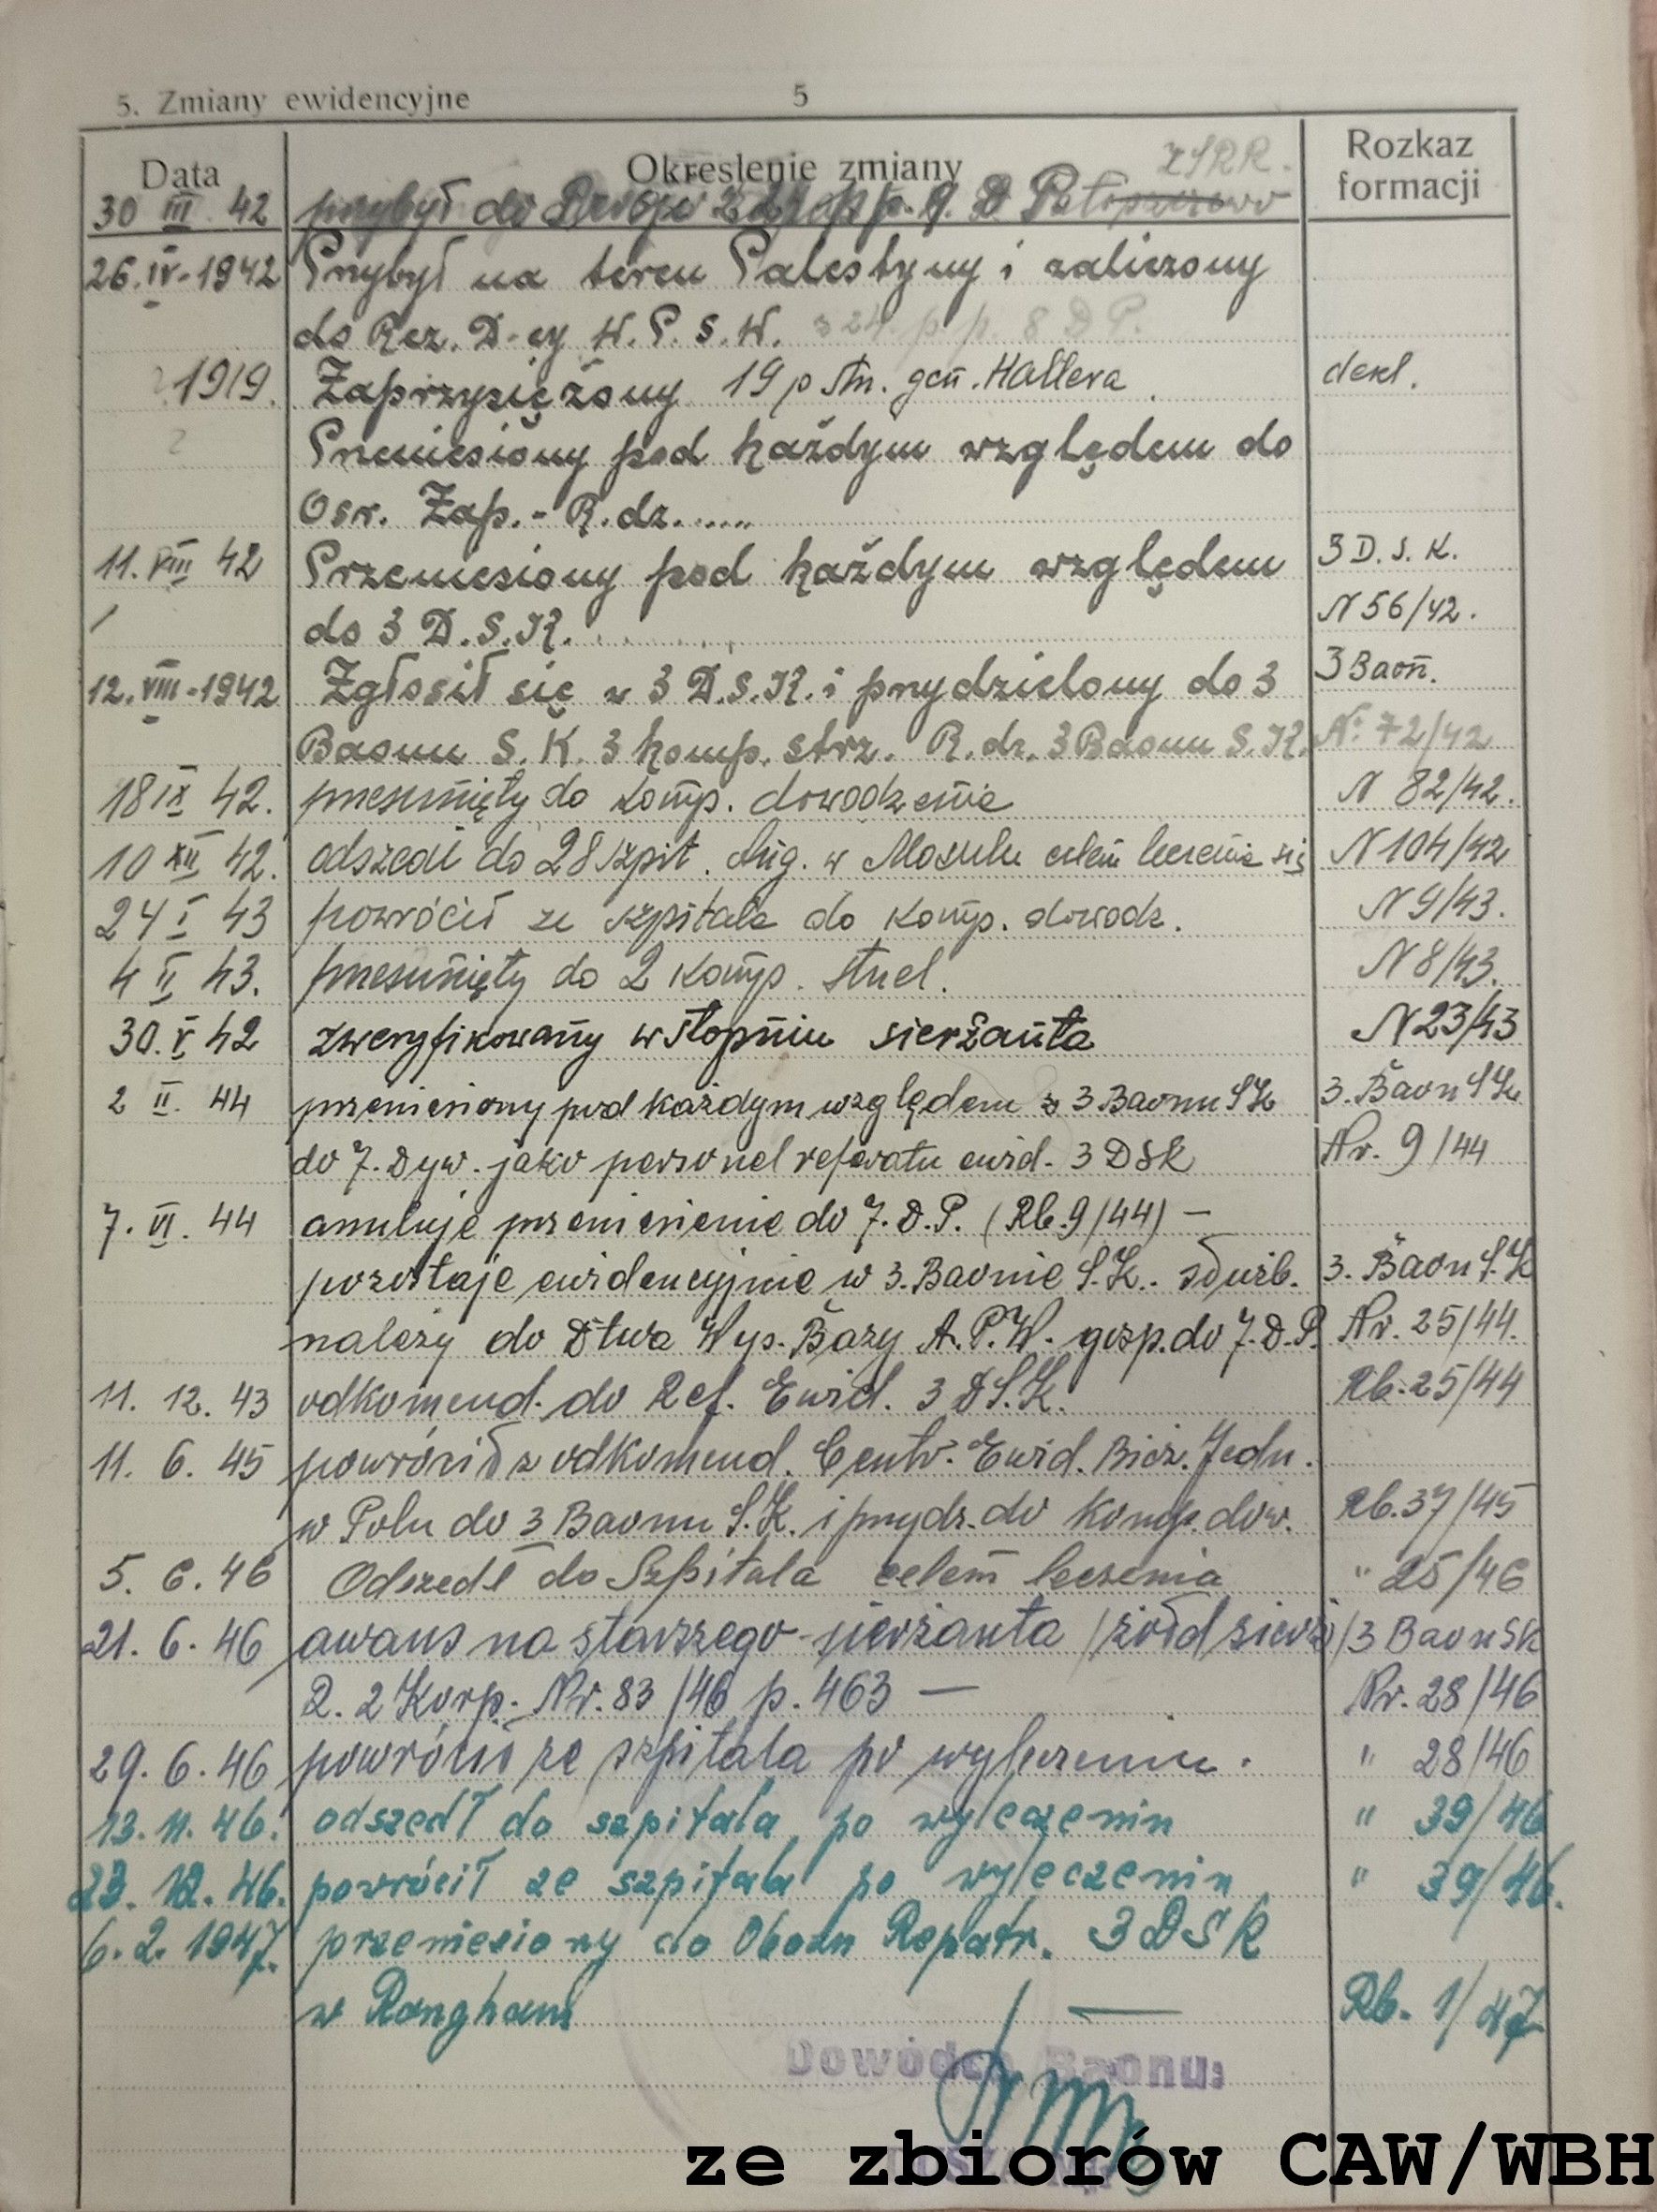 5. Zmiany ewidencyjne 5
Data Określenie zmiany Rozkaz formacji
ZSRR.
30 III 42 przybył do
26. IV - 1942 Przybył na teren Palestyny i zaliczony
do Rez. D-cy W. P. Ś. W. z 24. p p. 8 D P.
1919. Zaprzysiężony 19 p. gen. Hallera dekl.
? Przeniesiony pod każdym względem do
Ośr. Zap. - R. dz. ......
11. VIII 42 Przeniesiony pod każdym względem 3 D. S. K.
do 3 D. S. K. N 56/42.
12. VIII - 1942 Zgłosił się z 3 D. S. K. i przydzielony do 3 3 Baon.
Baonu S. K. 3 komp. strz. R. dz. 3 Baonu S. K. Nr 72/42
18 IX 42. przesunięty do komp. dowodzenia N 82/42.
10 XII 42. odszedł do 28 szpit. Ang. w Mosulu celem leczenia się N 104/42
24 I 43 powrócił ze szpitala do komp. dowodz. N 9/43.
4 II 43. przesunięty do 2 komp. strzel. N 8/43.
30. V 42 zweryfikowany w stopniu sierżanta N 23/43
2 II. 44 przeniesiony pod każdym względem z 3 Baonu S K 3. Baon S K
do 7. Dyw. jako personel referatu ewid. 3 DSK Nr. 9/44
7. VI. 44 anuluje przeniesienie do 7. D. P. (Rb. 9/44) —
pozostaje ewidencyjnie w 3. Baonie S. K. służb. 3. Baon S. K
należy do Dtwa Wys. Bazy A. P. W. gosp. do 7. D. P. Nr. 25/44.
11. 12. 43 odkomend. do Ref. Ewid. 3 D S. K. Rb. 25/44
11. 6. 45 powrócił z odkomend. Centr. Ewid. Bież. Jedn.
w Polu do 3 Baonu S. K. i przydz. do komp. dow. Rb. 37/45
5. 6. 46 Odszedł do Szpitala celem leczenia " 25/46
21. 6. 46 awans na starszego sierżanta /żołd sierż/ 3 Baon SK
R. 2 Korp. Nr. 83/46 p. 463 — Nr. 28/46
29. 6. 46 powrócił ze szpitala po wyleczeniu. " 28/46
13. 11. 46. odszedł do szpitala po wyleczeniu " 39/46
23. 12. 46. powrócił ze szpitala po wyleczeniu " 39/46.
6. 2. 1947. przeniesiony do Obozu Repatr. 3 DSK
w Rougham — Rb. 1/47
Dowódca Baonu:
ze zbiorów CAW/WBH